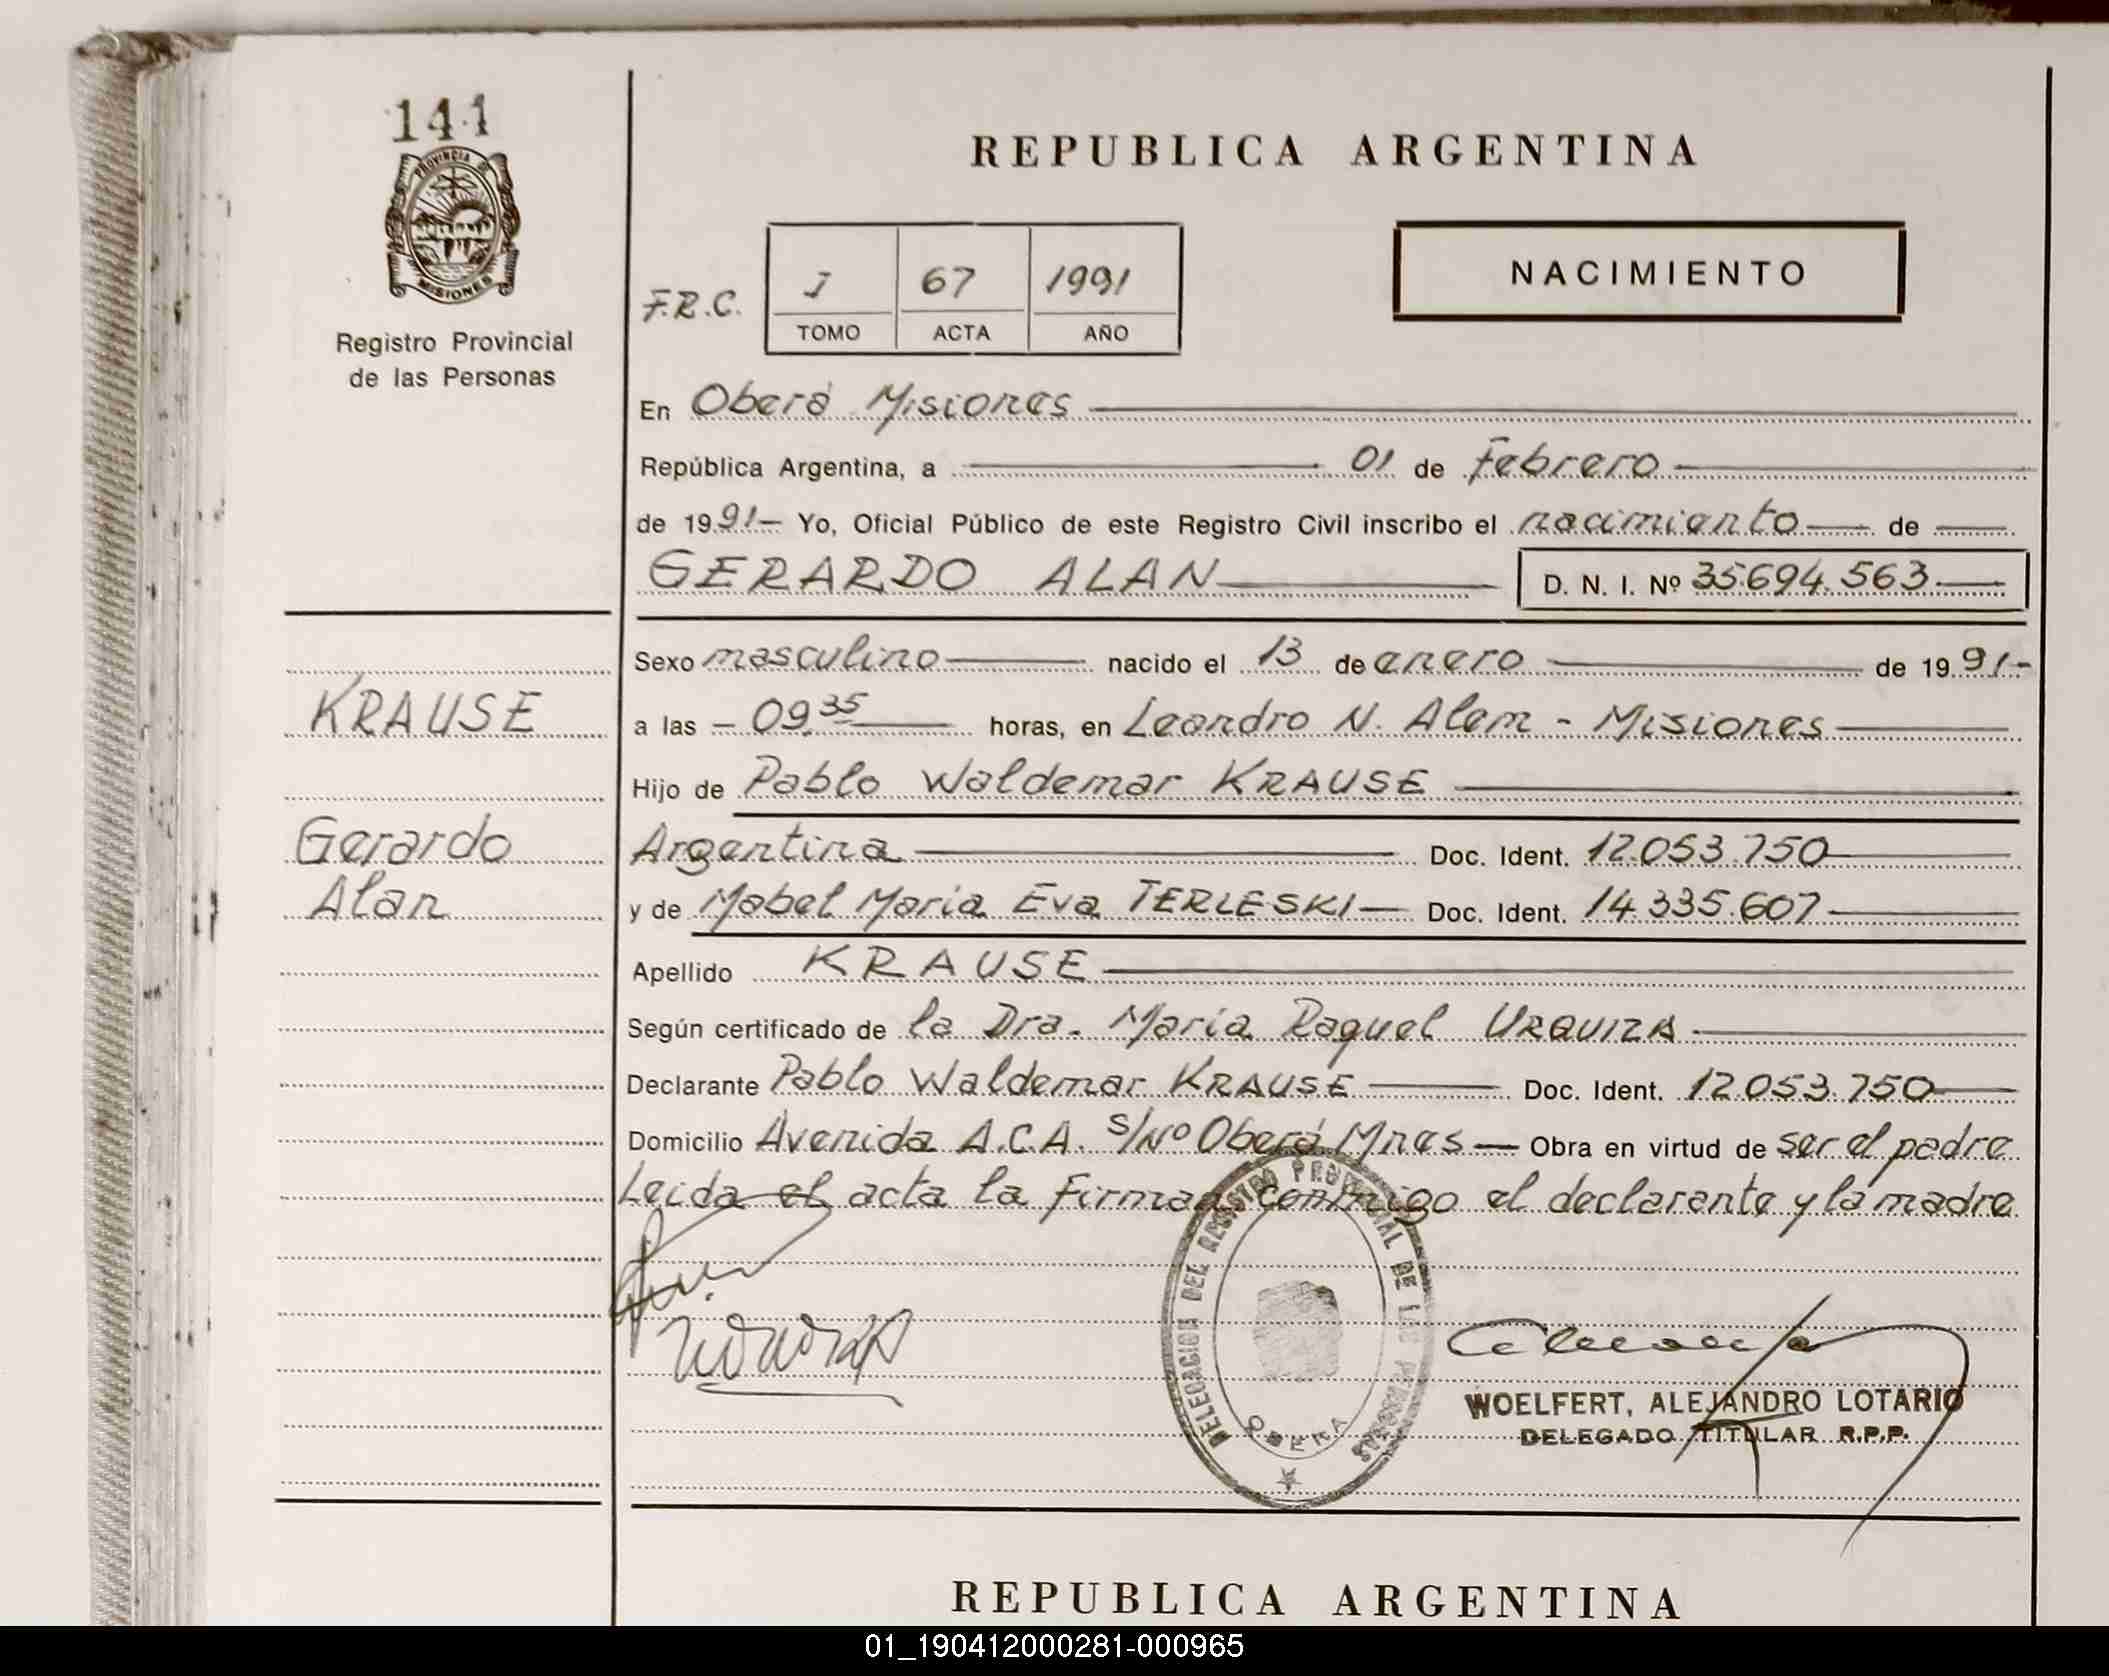 141
PROVINCIA DE
MISIONES
Registro Provincial
de las Personas
REPUBLICA ARGENTINA
F.R.C.
I 67 1991
TOMO ACTA AÑO
NACIMIENTO
En Oberá Misiones
República Argentina, a 01 de Febrero
de 1991- Yo, Oficial Público de este Registro Civil inscribo el nacimiento de
GERARDO ALAN D. N. I. Nº 35.694.563
Sexo masculino nacido el 13 de enero de 1991-
KRAUSE
a las - 09.35 horas, en Leandro N. Alem - Misiones
Hijo de Pablo Waldemar KRAUSE
Gerardo
Argentina Doc. Ident. 12.053.750
Alan
y de Mabel Maria Eva TERLESKI Doc. Ident. 14.335.607
Apellido KRAUSE
Según certificado de la Dra. Maria Raquel URQUIZA
Declarante Pablo Waldemar KRAUSE Doc. Ident. 12.053.750
Domicilio Avenida A.C.A. S/Nº Oberá Mnes Obra en virtud de ser el padre
Leida el acta la firman conmigo el declarante y la madre
DELEGACION DEL REGISTRO PROVINCIAL DE LAS PERSONAS
OBERA
WOELFERT, ALEJANDRO LOTARIO
DELEGADO TITULAR R.P.P.
REPUBLICA ARGENTINA
01_190412000281-000965